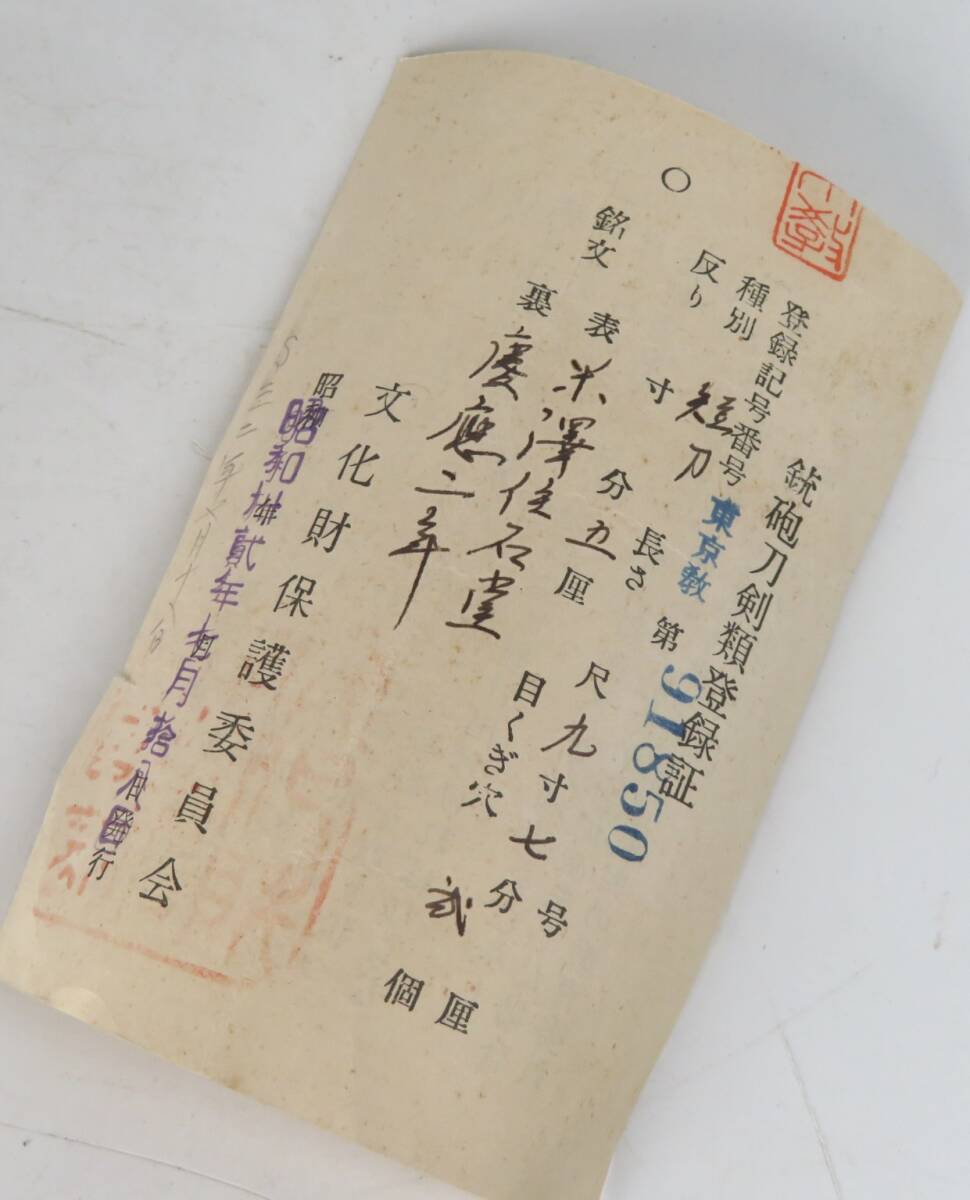 銃砲刀剣類登録証
登録記号番号 東京教 第91850号
種別 短刀 長さ 尺九寸七分 厘
反り 寸 分五厘 目くぎ穴 弍個
銘文 表 米澤住石堂
裏 慶應二年
文化財保護委員会
昭和卅貳年 月拾八日 発行